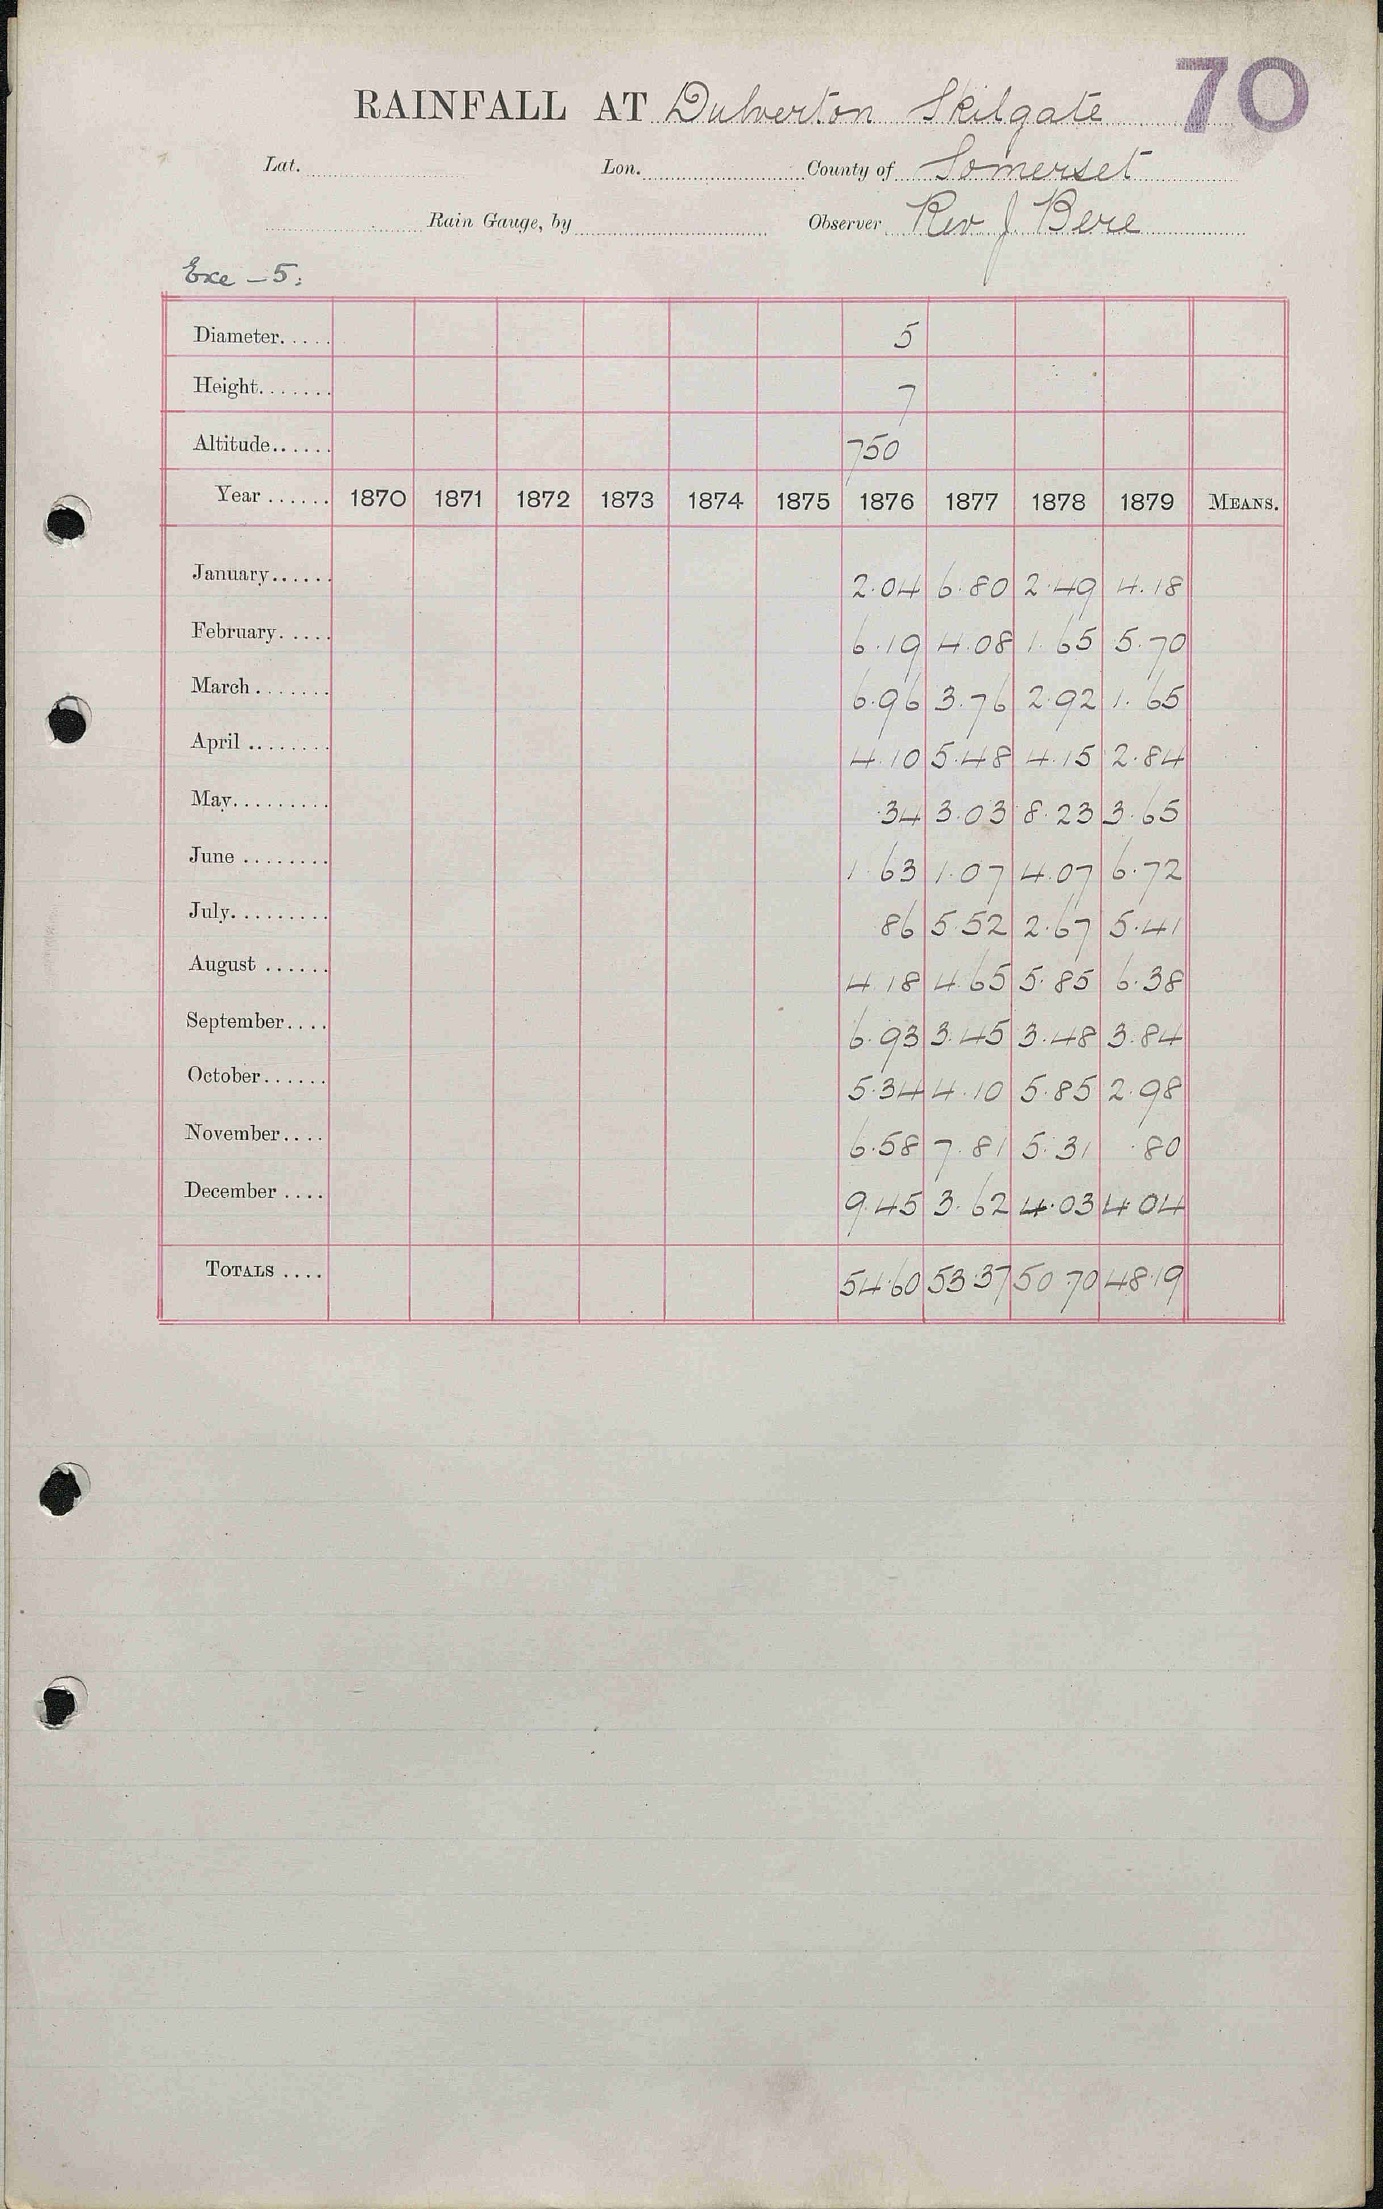 70
RAINFALL AT Dulverton Skilgate
Lat. Lon. County of Somerset
Rain Gauge, by Observer Rev J Bere
Exe – 5.
Diameter..... 5
Height....... 7
Altitude...... 750
Year ...... 1870 1871 1872 1873 1874 1875 1876 1877 1878 1879 MEANS.
January...... 2.04 6.80 2.49 4.18
February..... 6.19 4.08 1.65 5.70
March ....... 6.96 3.76 2.92 1.65
April ........ 4.10 5.48 4.15 2.84
May......... .34 3.03 8.23 3.65
June ........ 1.63 1.07 4.07 6.72
July......... 86 5.52 2.67 5.41
August ...... 4.18 4.65 5.85 6.38
September.... 6.93 3.45 3.48 3.84
October...... 5.34 4.10 5.85 2.98
November.... 6.58 7.81 5.31 .80
December .... 9.45 3.62 4.03 4.04
TOTALS .... 54.60 53.37 50.70 48.19